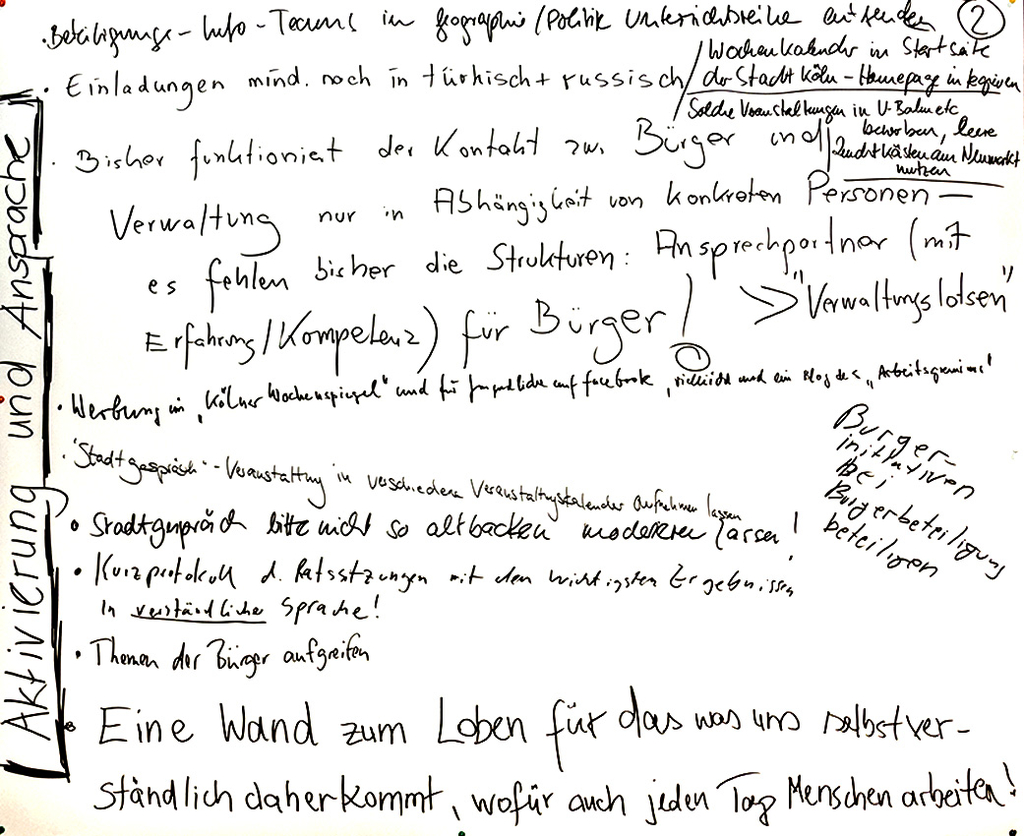 Aktivierung und Ansprache
2
· Beteiligungs-Info-Teams in Geographie/Politik Unterrichtsreihe entsenden
· Einladungen mind. noch in türkisch + russisch
/ Wochenkalender in Startseite
der Stadt Köln-Homepage integrieren
Solche Veranstaltungen in U-Bahn etc
bewerben, leere
Leuchtkästen am Neumarkt
nutzen
· Bisher funktioniert der Kontakt zw. Bürger und
Verwaltung nur in Abhängigkeit von konkreten Personen –
es fehlen bisher die Strukturen: Ansprechpartner (mit
Erfahrung/Kompetenz) für Bürger! > "Verwaltungslotsen"
· Werbung im "Kölner Wochenspiegel" und für Jugendliche auf facebook, vielleicht und ein Blog des "Arbeitsgremiums"
· "Stadtgespräch"-Veranstaltung in verschiedene Veranstaltungskalender aufnehmen lassen
• Stadtgespräch bitte nicht so altbacken moderieren lassen!
• Kurzprotokoll d. Ratssitzungen mit den wichtigsten Ergebnissen
in verständlicher Sprache!
• Themen der Bürger aufgreifen
Bürger-
initiativen
bei
Bürgerbeteiligung
beteiligen
• Eine Wand zum Loben für das was uns selbstver-
ständlich daherkommt, wofür auch jeden Tag Menschen arbeiten!